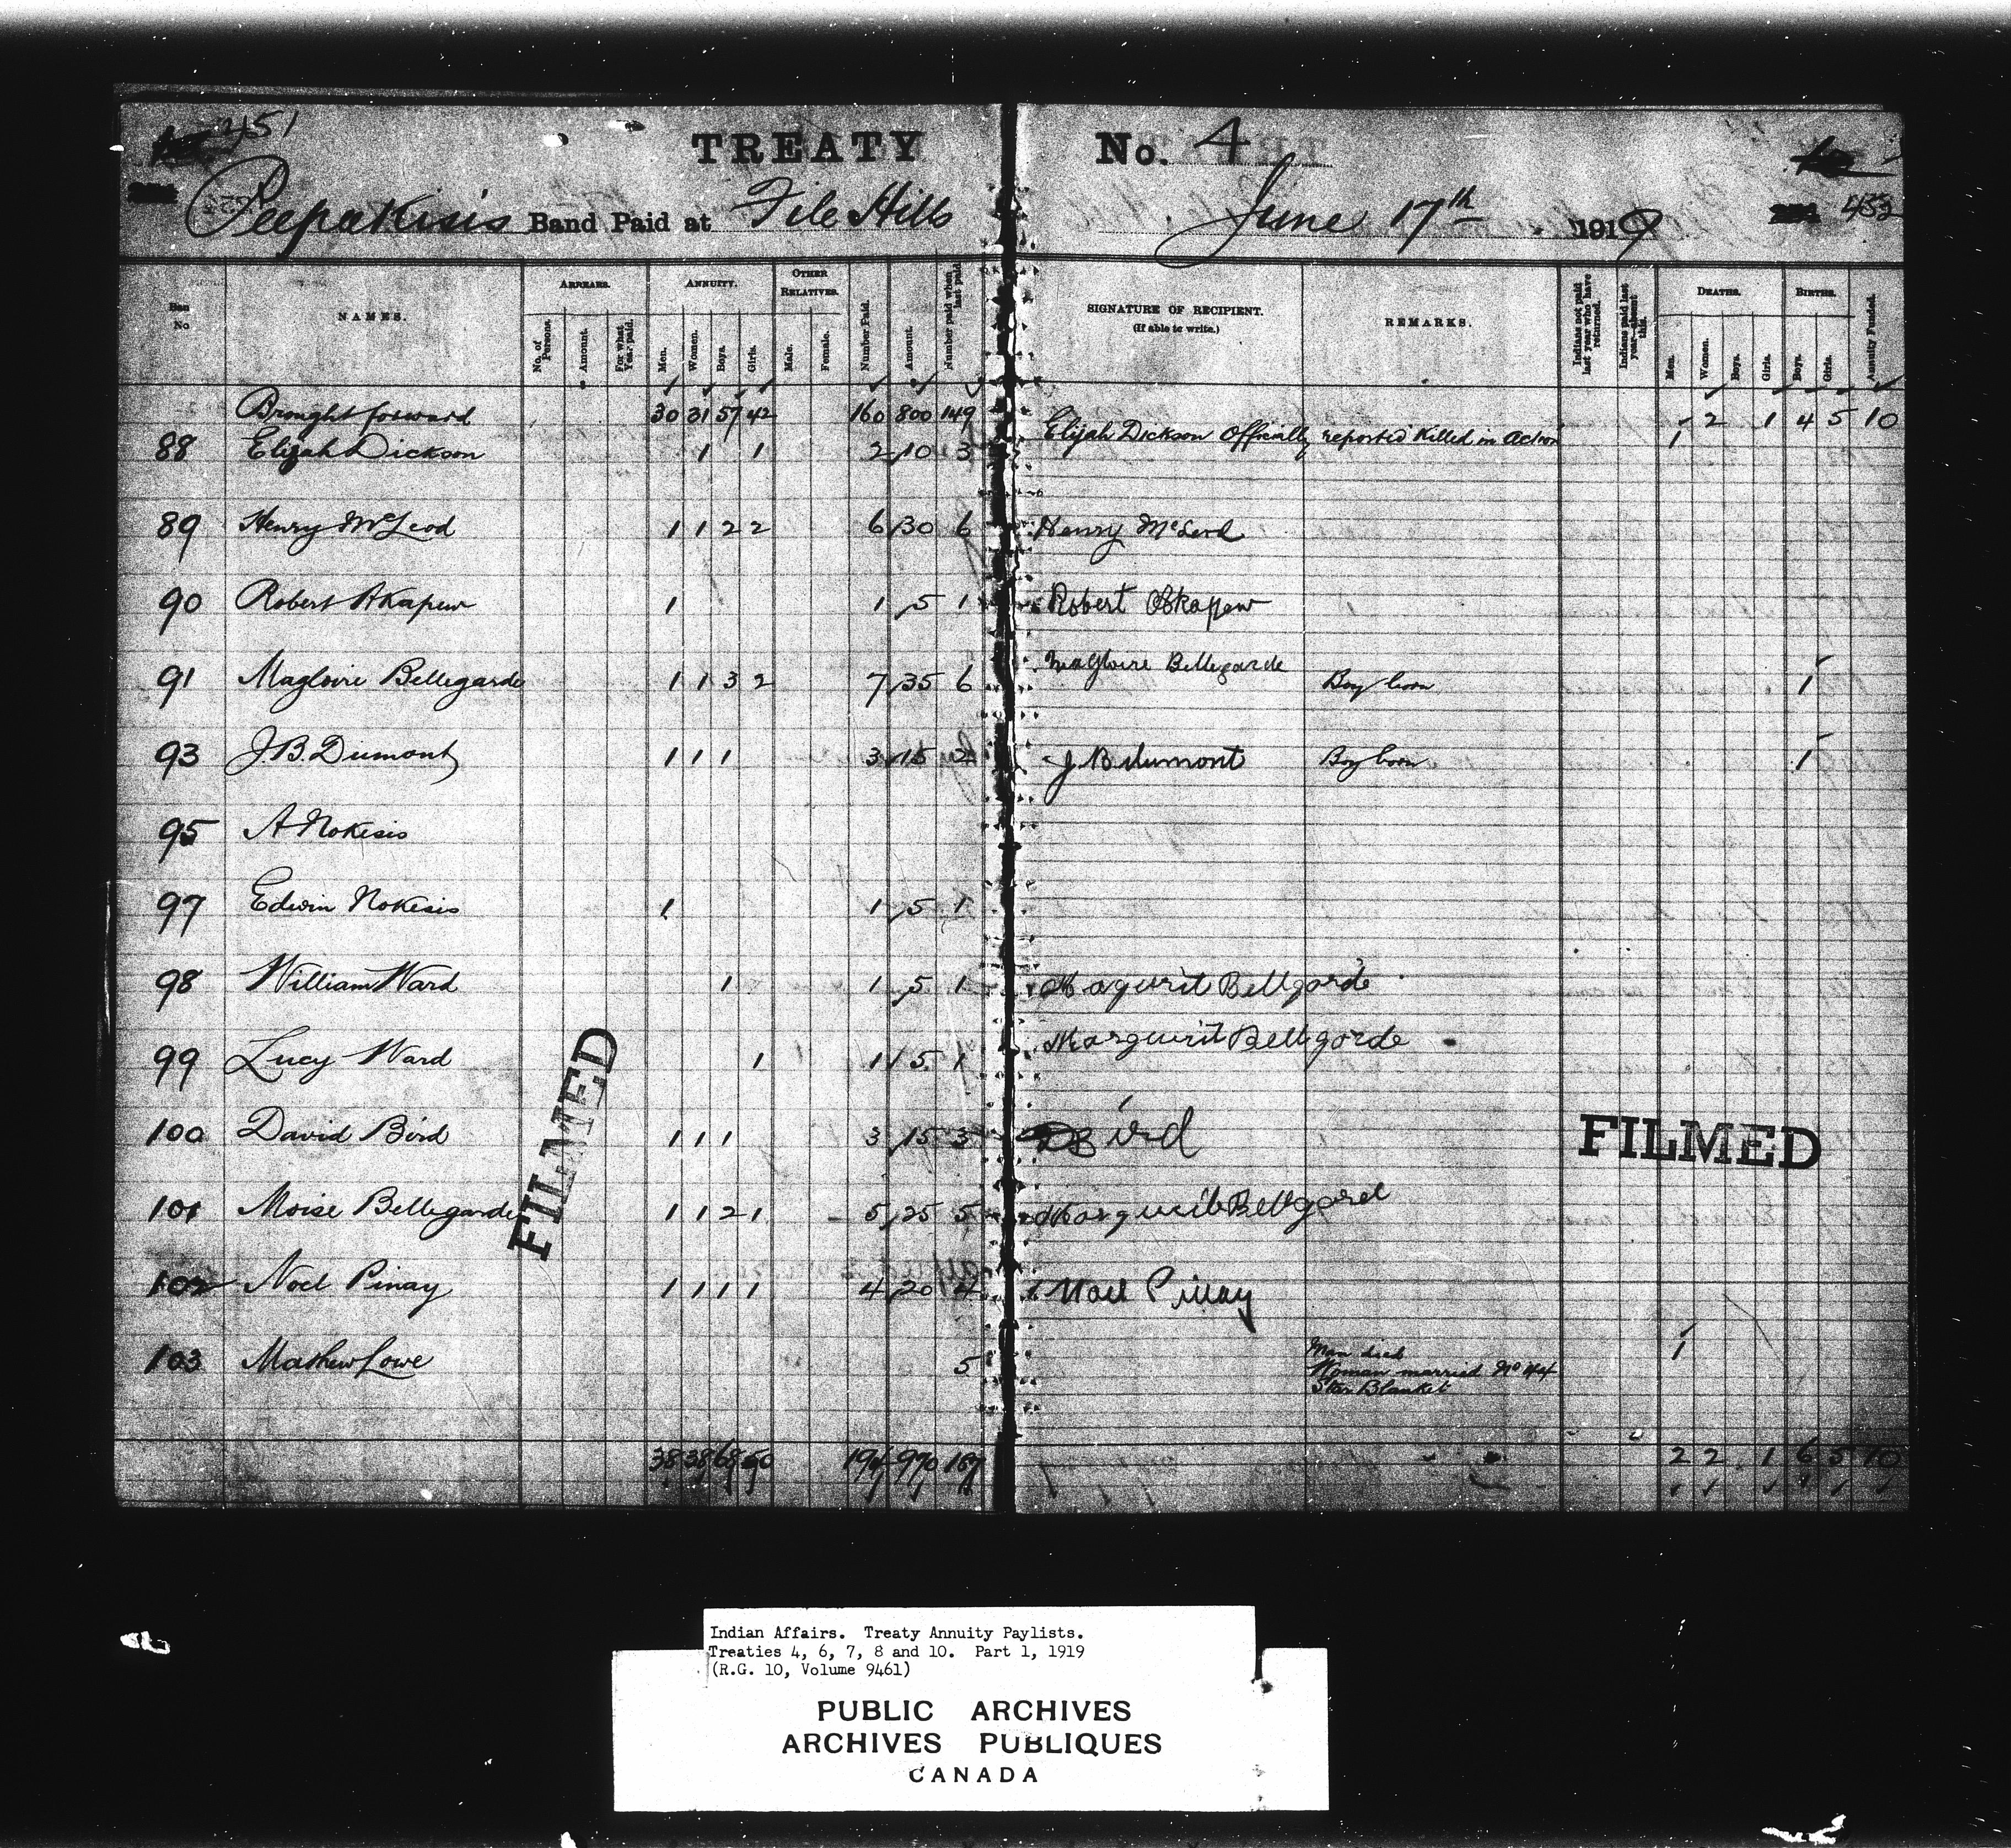 451
TREATY No. 4
Peepakisis Band Paid at File Hills June 17th 1919
452
No NAMES. ARREARS. ANNUITY. OTHER RELATIVES. Number Paid. Amount. Number paid when last paid SIGNATURE OF RECIPIENT. (If able to write.) REMARKS. Indians not paid last year who have returned. Indians paid last year absent this. DEATHS. BIRTHS. Annuity Funded.
No. of Persons. Amount. For what Year paid. Men. Women. Boys. Girls. Male. Female. Men. Women. Boys. Girls. Boys. Girls.
Brought forward 30 31 57 42 160 800 149 2 1 4 5 10
88 Elijah Dickson 1 1 2 10 3 Elijah Dickson Officially reported Killed in Action 1
89 Henry McLeod 1 1 2 2 6 30 6 Henry McLeod
90 Robert Akapew 1 1 5 1 Robert Akapew
91 Magloire Bellegarde 1 1 3 2 7 35 6 Magloire Bellegarde Boy born 1
93 J.B. Dumont 1 1 1 3 15 2 J.B. dumont Boy born 1
95 A Nokesis
97 Edwin Nokesis 1 1 5 1
98 William Ward 1 1 5 1 Magurit Bellgarde
99 Lucy Ward 1 1 5 1 Marguirit Bellgorde
100 David Bird 1 1 1 3 15 3 D Bird
101 Moise Bellegarde 1 1 2 1 5 25 5 Bellgard
102 Noel Pinay 1 1 1 1 4 20 4 Noel Pinay
103 Mathew Lowe 5 Man died 1
Woman married No 44
Star Blanket
38 38 68 50 194 970 187 2 2 1 6 5 10
FILMED
FILMED
Indian Affairs. Treaty Annuity Paylists.
Treaties 4, 6, 7, 8 and 10. Part 1, 1919
(R.G. 10, Volume 9461)
PUBLIC ARCHIVES
ARCHIVES PUBLIQUES
CANADA